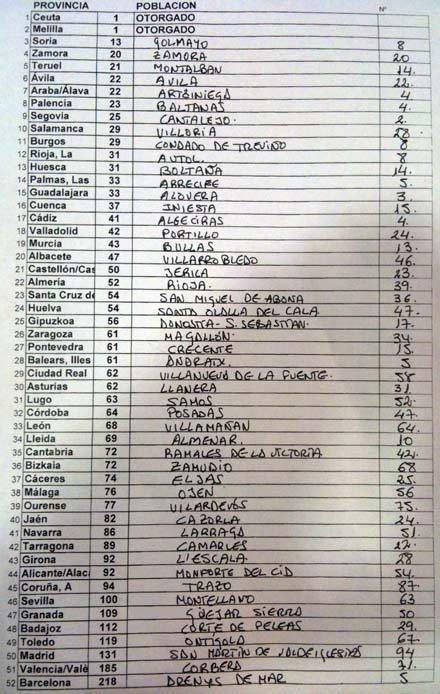 PROVINCIA POBLACION Nº
1 Ceuta 1 OTORGADO
2 Melilla 1 OTORGADO
3 Soria 13 GOLMAYO 8
4 Zamora 20 ZAMORA 20
5 Teruel 21 MONTALBAN 14.
6 Ávila 22 AVILA 22.
7 Araba/Álava 22 ARTZINIEGA 4
8 Palencia 23 BALTANAS 4.
9 Segovia 25 CANTALEJO. 2.
10 Salamanca 29 VILLORIA 28
11 Burgos 29 CONDADO DE TREVIÑO 8
12 Rioja, La 31 AUTOL. 8
13 Huesca 31 BOLTAÑA 14.
14 Palmas, Las 33 ARRECIFE 5.
15 Guadalajara 33 ALOVERA 3.
16 Cuenca 37 INIESTA 15.
17 Cádiz 41 ALGECIRAS 4.
18 Valladolid 42 PORTILLO 24.
19 Murcia 43 BULLAS 13.
20 Albacete 47 VILLARROBLEDO 46.
21 Castellón/Cas 50 JERICA 23.
22 Almería 52 RIOJA. 39.
23 Santa Cruz de 54 SAN MIGUEL DE ABONA 36.
24 Huelva 54 SANTA OLALLA DEL CALA. 47.
25 Gipuzkoa 56 DONOSTIA - S. SEBASTIAN. 17.
26 Zaragoza 61 MAGALLÓN. 34.
27 Pontevedra 61 CRECENTE 15
28 Balears, Illes 61 ANDRATX. 5
29 Ciudad Real 62 VILLANUEVA DE LA FUENTE. 58
30 Asturias 62 LLANERA 31
31 Lugo 63 SAMOS 52.
32 Córdoba 64 POSADAS 47
33 León 68 VILLAMAÑAN 64.
34 Lleida 69 ALMENAR. 10
35 Cantabria 72 RAMALES DE LA VICTORIA 42.
36 Bizkaia 72 ZAMUDIO 68
37 Cáceres 74 ELJAS 25.
38 Málaga 76 OJEN 56
39 Ourense 77 VILARDEVOS 75.
40 Jaén 82 CAZORLA 24.
41 Navarra 86 LARRAGA 51.
42 Tarragona 89 CAMARLES 22.
43 Girona 92 L'ESCALA. 28
44 Alicante/Alac 92 MONFORTE DEL CID 54.
45 Coruña, A 94 TRAZO 87
46 Sevilla 100 MONTELLANO 63
47 Granada 109 GÜEJAR SIERRA 50
48 Badajoz 112 CORTE DE PELEAS 29.
49 Toledo 119 ONTIGOLA 67.
50 Madrid 131 SAN MARTIN DE VALDEIGLESIAS 94
51 Valencia/Valè 185 CORBERA 71.
52 Barcelona 218 ARENYS DE MAR 5